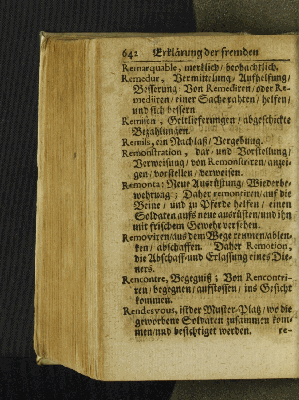 642 Erklärung der fremden
Remarquable, merklich/ beobachtlich.
Remedur, Vermittelung/ Aufhelfung/
Besserung. Von Remediren/ oder Re-
mediiren/ einer Sache rahten/ helfen/
und sich bessern.
Remisen, Geltlieferungen/ abgeschickte
Bezahlungen.
Remis, ein Nachlaß/ Vergebung.
Remonstration, dar- und Vorstellung/
Verweisung/ von Remonstriren/ anzei-
gen/ vorstellen/ verweisen.
Remonta: Neue Ausrüstung/ Wiederbe-
wehrung; Daher remontiren/ auf die
Beine/ und zu Pferde helfen/ einen
Soldaten aufs neue ausrüsten/ und ihn
mit frischem Gewehr versehen.
Removiren/ aus dem Wege reumen/ ablen-
ken/ abschaffen. Daher Remotion,
die Abschaff- und Erlassung eines Die-
ners.
Rencontre, Begegniß; Von Rencontri-
ren/ begegnen/ aufstossen/ ins Gesicht
kommen.
Rendesvous, ist der Muster-Platz/ wo die
geworbene Soldaten zusammen kom-
men/ und besichtiget werden. re-